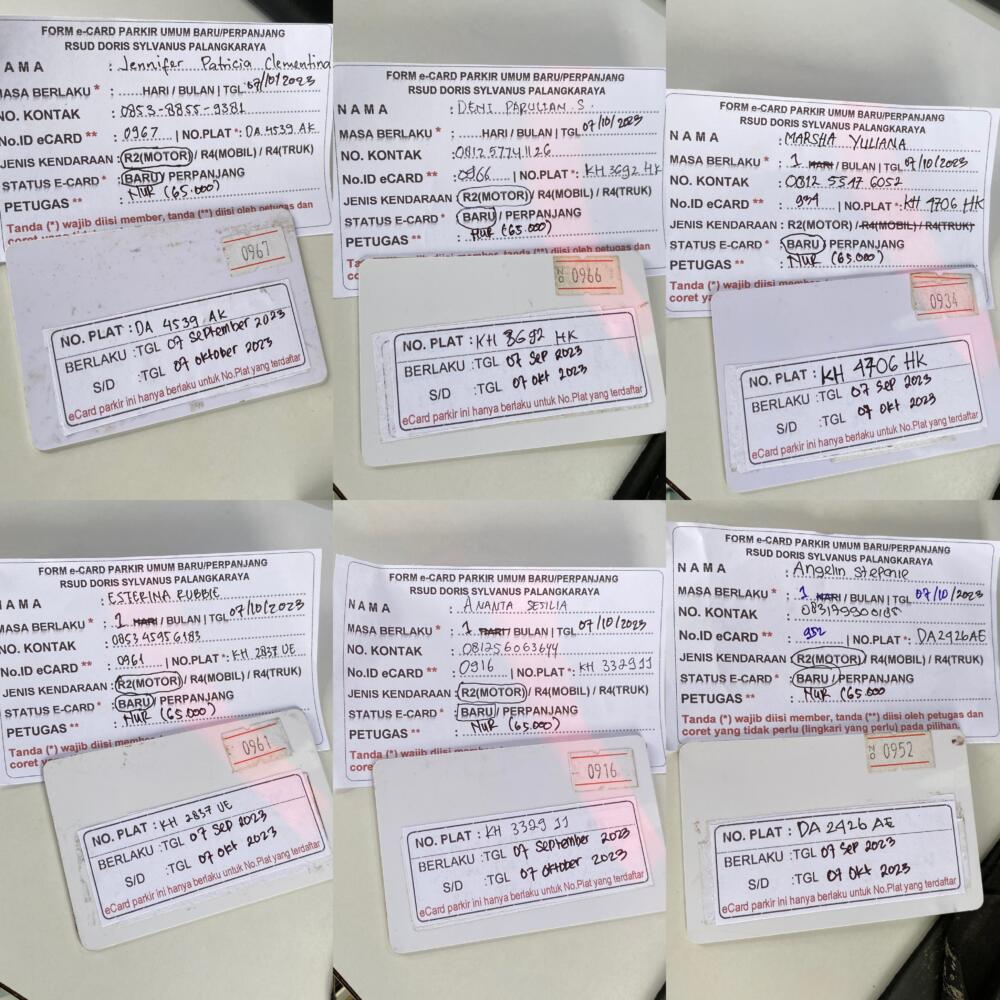 FORM e-CARD PARKIR UMUM BARU/PERPANJANG
RSUD DORIS SYLVANUS PALANGKARAYA
AMA : Jennifer Patricia Clementina
MASA BERLAKU * : ......HARI / BULAN | TGL 07/10/2023
NO. KONTAK : 0853-8855-9381
No.ID eCARD ** : 0967 | NO.PLAT *: DA 4539 AK
JENIS KENDARAAN : R2(MOTOR) / R4(MOBIL) / R4(TRUK)
STATUS E-CARD * : BARU / PERPANJANG
PETUGAS ** : NUR (65.000)
Tanda (*) wajib diisi member, tanda (**) diisi oleh petugas dan
0967
NO. PLAT : DA 4539 AK
BERLAKU : TGL 07 September 2023
S/D : TGL 07 Oktober 2023
eCard parkir ini hanya berlaku untuk No.Plat yang terdaftar
FORM e-CARD PARKIR UMUM BARU/PERPANJANG
RSUD DORIS SYLVANUS PALANGKARAYA
NAMA : DENI PARULIAN S.
MASA BERLAKU * : ......HARI / BULAN | TGL 07/10/2023
NO. KONTAK : 081257741126
No.ID eCARD ** : 0966 | NO.PLAT *: KH 3692 HK
JENIS KENDARAAN : R2(MOTOR) / R4(MOBIL) / R4(TRUK)
STATUS E-CARD * : BARU / PERPANJANG
PETUGAS ** : NUR (65.000)
NO 0966
NO. PLAT : KH 3692 HK
BERLAKU : TGL 07 Sep 2023
S/D : TGL 07 Okt 2023
eCard parkir ini hanya berlaku untuk No.Plat yang terdaftar
FORM e-CARD PARKIR UMUM BARU/PERPANJANG
RSUD DORIS SYLVANUS PALANGKARAYA
NAMA : MARSHA YULIANA
MASA BERLAKU * : 1 HARI / BULAN | TGL 07/10/2023
NO. KONTAK : 0812 5517 6052
No.ID eCARD ** : 934 | NO.PLAT *: KH 4706 HK
JENIS KENDARAAN : R2(MOTOR) / R4(MOBIL) / R4(TRUK)
STATUS E-CARD * : BARU / PERPANJANG
PETUGAS ** : NUR (65.000)
Tanda (*) wajib diisi
coret
0934
NO. PLAT : KH 4706 HK
BERLAKU : TGL 07 Sep 2023
S/D : TGL 07 Okt 2023
eCard parkir ini hanya berlaku untuk No.Plat yang terdaftar
FORM e-CARD PARKIR UMUM BARU/PERPANJANG
RSUD DORIS SYLVANUS PALANGKARAYA
NAMA : ESTERINA RUBBIE
MASA BERLAKU * : 1 HARI / BULAN | TGL 07/10/2023
NO. KONTAK : 085345956183
No.ID eCARD ** : 0961 | NO.PLAT *: KH 2837 UE
JENIS KENDARAAN : R2(MOTOR) / R4(MOBIL) / R4(TRUK)
STATUS E-CARD * : BARU / PERPANJANG
PETUGAS ** : NUR (65.000)
Tanda (*) wajib diisi
coret
0961
NO. PLAT : KH 2837 UE
BERLAKU : TGL 07 Sep 2023
S/D : TGL 07 Okt 2023
eCard parkir ini hanya berlaku untuk No.Plat yang terdaftar
FORM e-CARD PARKIR UMUM BARU/PERPANJANG
RSUD DORIS SYLVANUS PALANGKARAYA
NAMA : ANANTA SESILIA
MASA BERLAKU * : 1 HARI / BULAN | TGL 07/10/2023
NO. KONTAK : 081256063644
No.ID eCARD ** : 0916 | NO.PLAT *: KH 3329 JJ
JENIS KENDARAAN : R2(MOTOR) / R4(MOBIL) / R4(TRUK)
STATUS E-CARD * : BARU / PERPANJANG
PETUGAS ** : NUR (65.000)
Tanda (*) wajib diisi
coret
0916
NO. PLAT : KH 3329 JJ
BERLAKU : TGL 07 September 2023
S/D : TGL 07 Oktober 2023
eCard parkir ini hanya berlaku untuk No.Plat yang terdaftar
FORM e-CARD PARKIR UMUM BARU/PERPANJANG
RSUD DORIS SYLVANUS PALANGKARAYA
NAMA : Angelin Stepanie
MASA BERLAKU * : 1 HARI / BULAN | TGL 07/10/2023
NO. KONTAK
No.ID eCARD ** : 952 | NO.PLAT *: DA 2426 AE
JENIS KENDARAAN : R2(MOTOR) / R4(MOBIL) / R4(TRUK)
STATUS E-CARD * : BARU / PERPANJANG
PETUGAS ** : NUR (65.000
Tanda (*) wajib diisi member, tanda (**) diisi oleh petugas dan
coret yang tidak perlu (lingkari yang perlu) pada pilihan.
NO 0952
NO. PLAT : DA 2426 AE
BERLAKU : TGL 07 Sep 2023
S/D : TGL 07 Okt 2023
eCard parkir ini hanya berlaku untuk No.Plat yang terdaftar